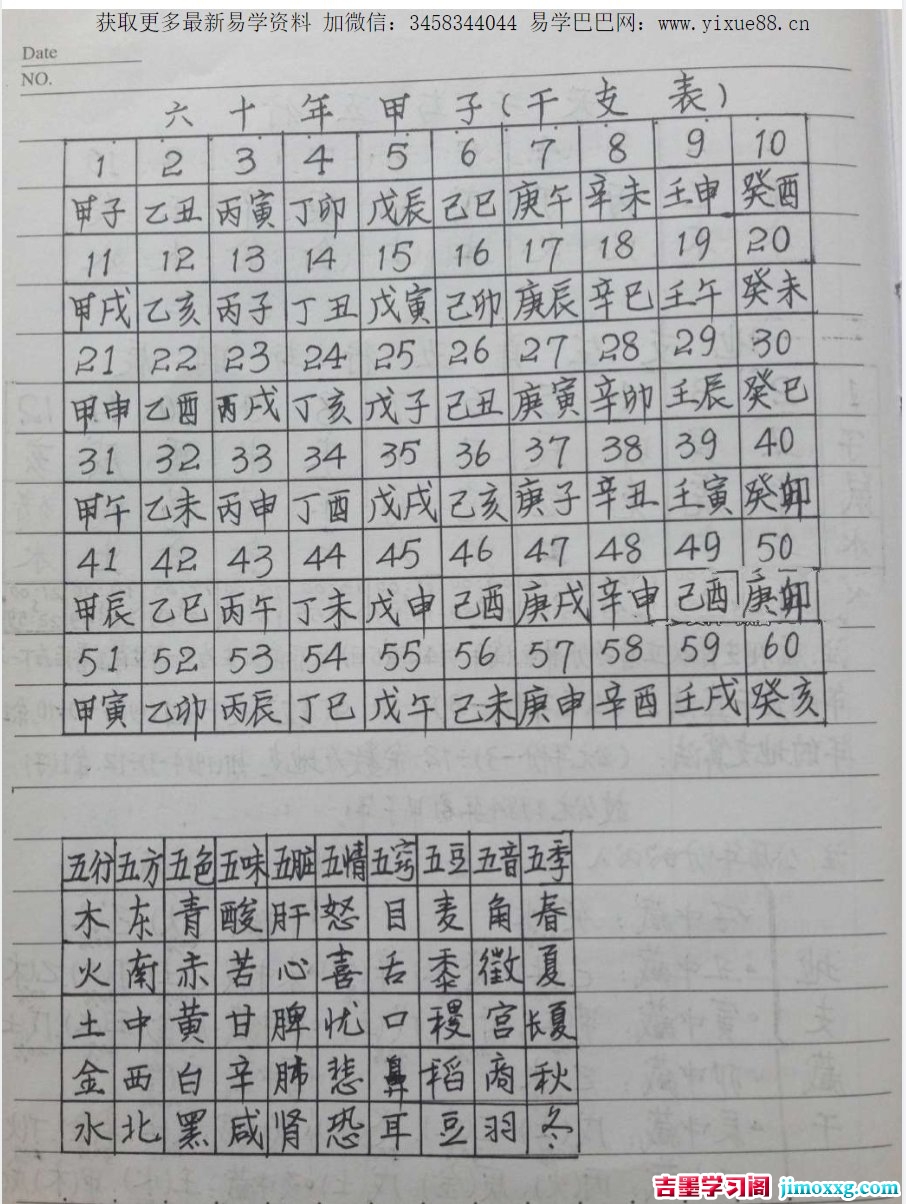 获取更多最新易学资料 加微信：3458344044 易学巴巴网：www.yixue88.cn
Date
NO.
六十年甲子(干支表)
1 2 3 4 5 6 7 8 9 10
甲子 乙丑 丙寅 丁卯 戊辰 己巳 庚午 辛未 壬申 癸酉
11 12 13 14 15 16 17 18 19 20
甲戌 乙亥 丙子 丁丑 戊寅 己卯 庚辰 辛巳 壬午 癸未
21 22 23 24 25 26 27 28 29 30
甲申 乙酉 丙戌 丁亥 戊子 己丑 庚寅 辛卯 壬辰 癸巳
31 32 33 34 35 36 37 38 39 40
甲午 乙未 丙申 丁酉 戊戌 己亥 庚子 辛丑 壬寅 癸卯
41 42 43 44 45 46 47 48 49 50
甲辰 乙巳 丙午 丁未 戊申 己酉 庚戌 辛申 己酉 庚卯
51 52 53 54 55 56 57 58 59 60
甲寅 乙卯 丙辰 丁巳 戊午 己未 庚申 辛酉 壬戌 癸亥
五行 五方 五色 五味 五脏 五情 五窍 五豆 五音 五季
木 东 青 酸 肝 怒 目 麦 角 春
火 南 赤 苦 心 喜 舌 黍 徵 夏
土 中 黄 甘 脾 忧 口 稷 宫 长夏
金 西 白 辛 肺 悲 鼻 稻 商 秋
水 北 黑 咸 肾 恐 耳 豆 羽 冬
吉墨学习阁 jimoxxg.com